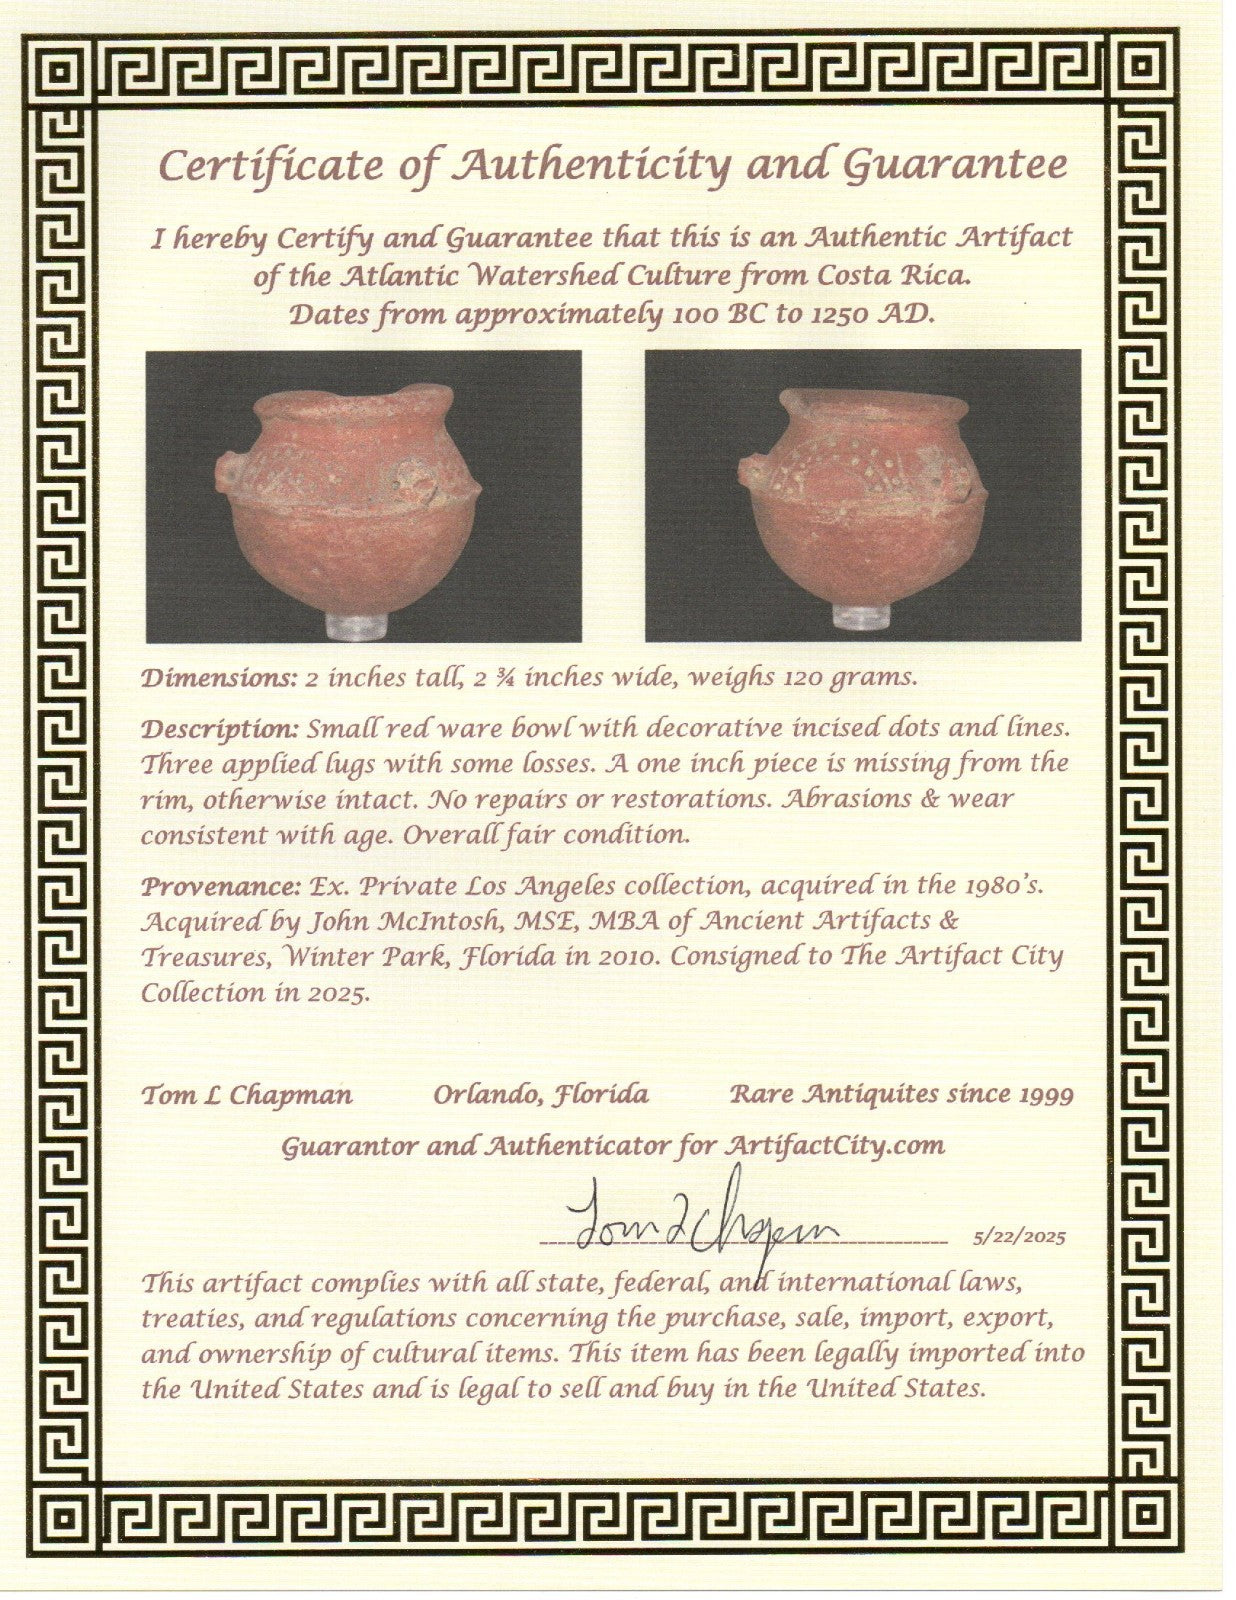 Certificate of Authenticity and Guarantee
I hereby Certify and Guarantee that this is an Authentic Artifact
of the Atlantic Watershed Culture from Costa Rica.
Dates from approximately 100 BC to 1250 AD.
Dimensions: 2 inches tall, 2 ¾ inches wide, weighs 120 grams.
Description: Small red ware bowl with decorative incised dots and lines.
Three applied lugs with some losses. A one inch piece is missing from the
rim, otherwise intact. No repairs or restorations. Abrasions & wear
consistent with age. Overall fair condition.
Provenance: Ex. Private Los Angeles collection, acquired in the 1980's.
Acquired by John McIntosh, MSE, MBA of Ancient Artifacts &
Treasures, Winter Park, Florida in 2010. Consigned to The Artifact City
Collection in 2025.
Tom L Chapman Orlando, Florida Rare Antiquites since 1999
Guarantor and Authenticator for ArtifactCity.com
Tom L Chapman 5/22/2025
This artifact complies with all state, federal, and international laws,
treaties, and regulations concerning the purchase, sale, import, export,
and ownership of cultural items. This item has been legally imported into
the United States and is legal to sell and buy in the United States.